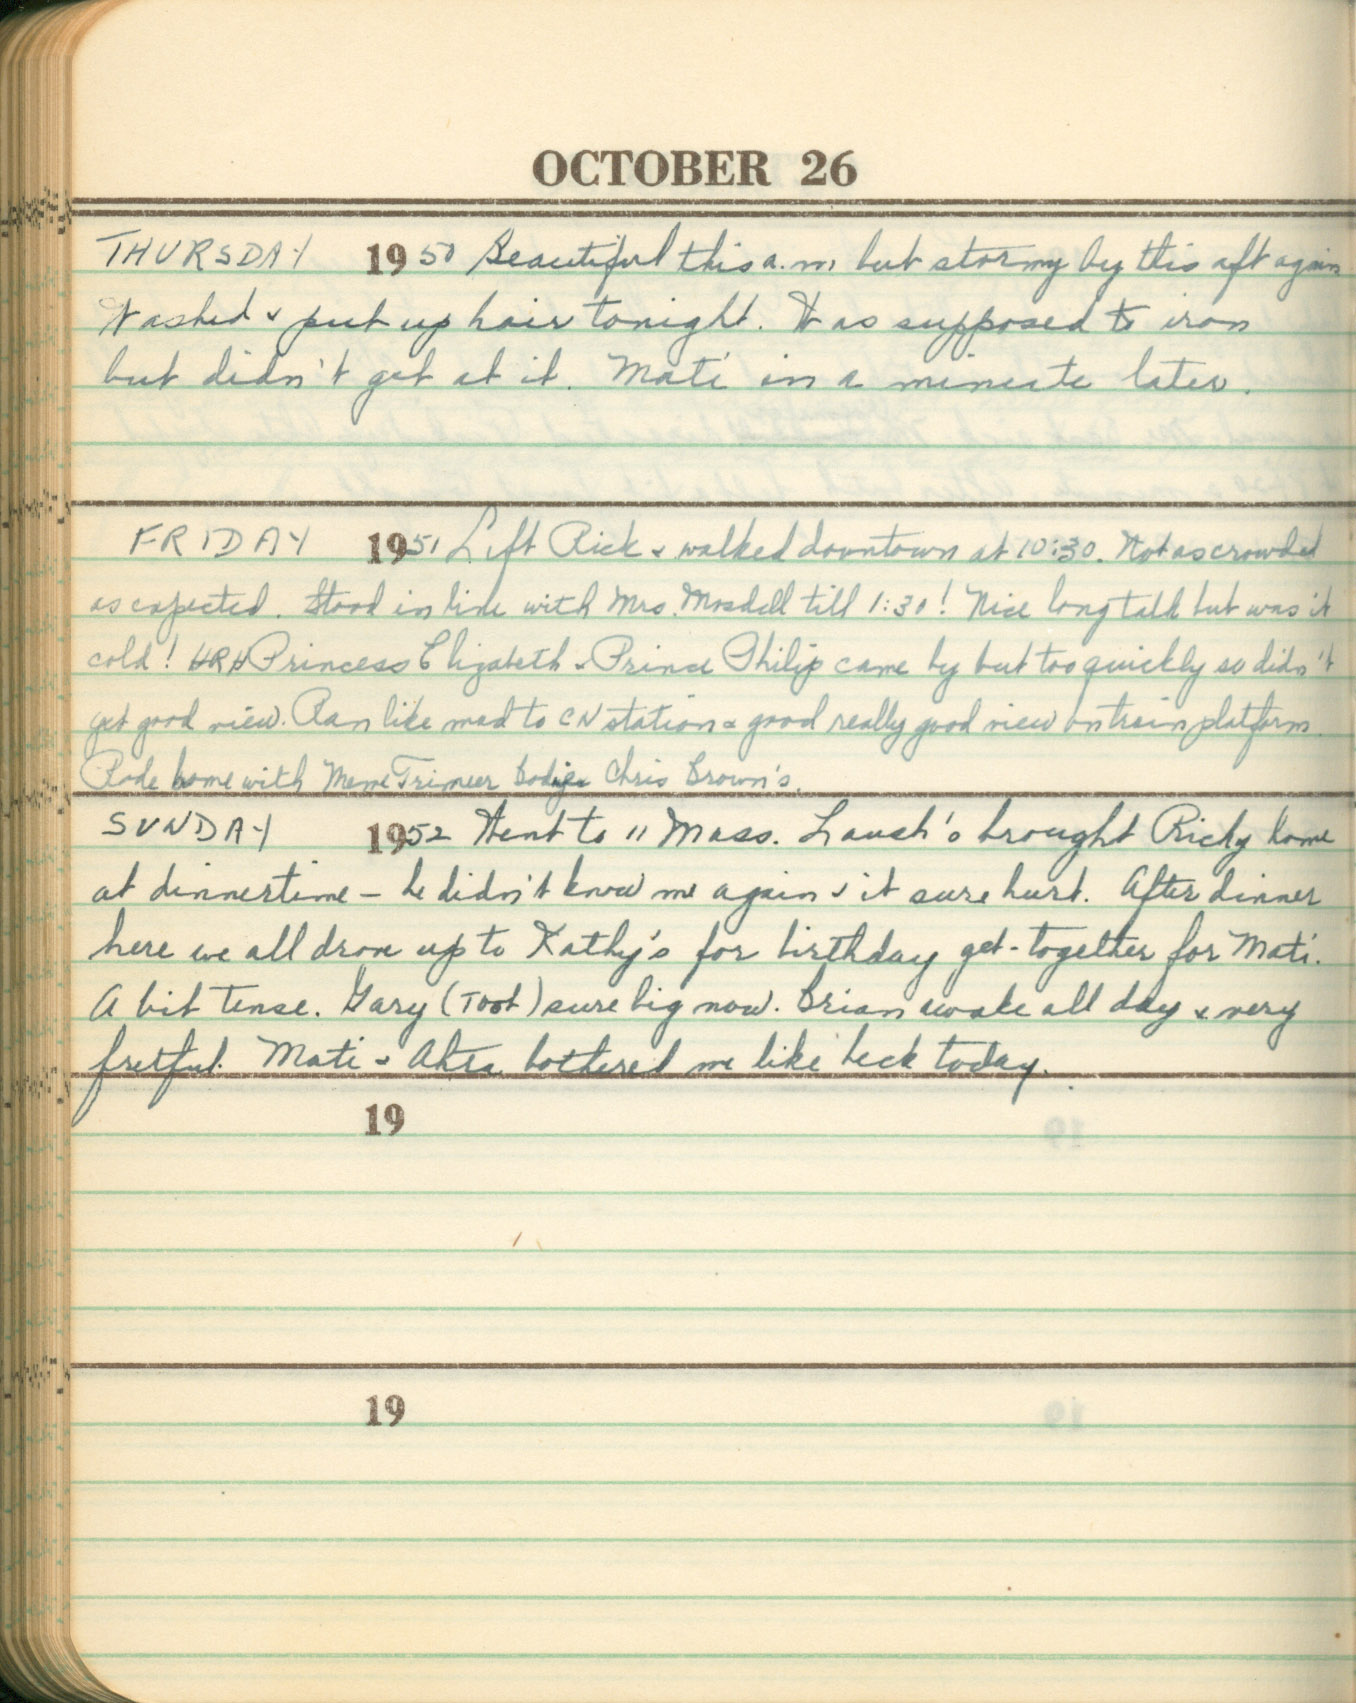 OCTOBER 26
THURSDAY 1950 Beautiful this a.m. but stormy by this aft again
Washed & put up hair tonight. Was supposed to iron
but didn't get at it. Mati in a minute later.
FRIDAY 1951 Left Rick & walked downtown at 10:30. Not as crowded
as expected. Stood in line with Mrs. Mosdell till 1:30! Nice long talk but was it
cold! HRH Princess Elizabeth & Prince Philip came by but too quickly so didn't
get good view. Ran like mad to CN station & good really good view on train platform.
Rode home with Chris Brown's.
SUNDAY 1952 Went to 11 Mass. brought Ricky home
at dinnertime – he didn't know me again & it sure hurt. After dinner
here we all drove up to Kathy's for birthday get-together for Mati.
A bit tense. Gary (Toot) sure big now. Brian awake all day & very
fretful. Mati & bothered me like heck today.
19
19